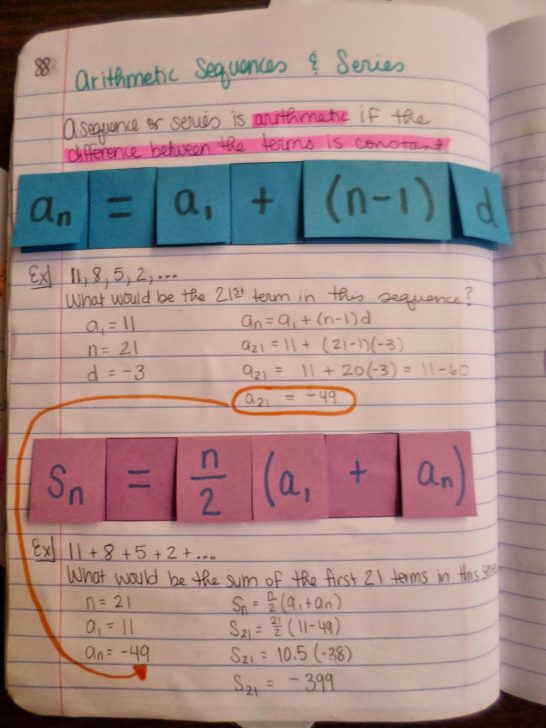 88
Arithmetic Sequences & Series
A sequence or series is arithmetic if the
difference between the terms is constant.
aₙ = a₁ + (n-1) d
Ex) 11, 8, 5, 2, ...
What would be the 21st term in this sequence?
a₁ = 11 aₙ = a₁ + (n-1)d
n = 21 a₂₁ = 11 + (21-1)(-3)
d = -3 a₂₁ = 11 + 20(-3) = 11-60
a₂₁ = -49
Sₙ = n/2 (a₁ + aₙ)
Ex) 11 + 8 + 5 + 2 + ...
What would be the sum of the first 21 terms in this
n = 21 Sₙ = n/2 (a₁+aₙ)
a₁ = 11 S₂₁ = 21/2 (11-49)
aₙ = -49 S₂₁ = 10.5 (-38)
S₂₁ = -399